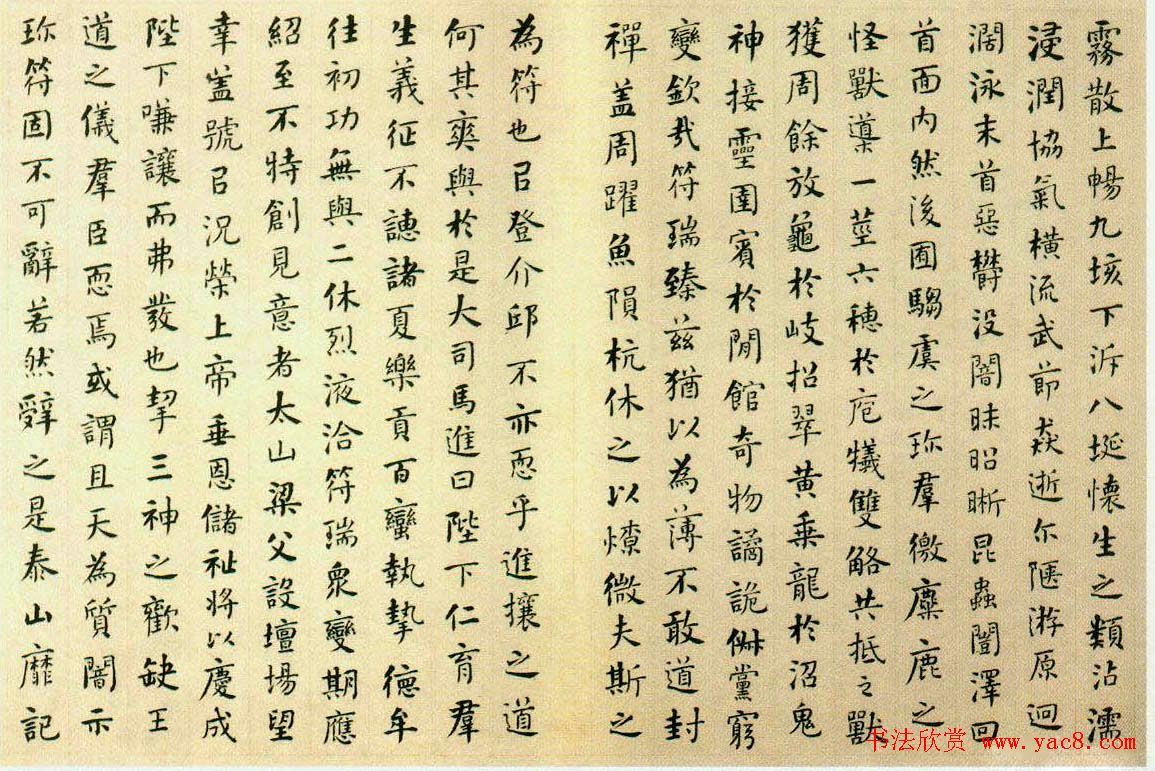 霧散上暢九垓下泝八埏懷生之類沾濡
浸潤協氣橫流武節猋逝尒陿游原迥
濶泳末首惡欝没闇昧昭晰昆蟲闓澤回
首面内然後囿騶虞之珎羣徼麋鹿之
怪獸䆃一莖六穗於庖犧雙觡共抵之獸
獲周餘放龜於岐招翠黄乗龍於沼鬼
神接靈圉賓於閒館奇物譎詭俶黨窮
變欽㢤符瑞臻兹猶以為薄不敢道封
禪盖周躍魚隕杭休之以燎微夫斯之
為符也㠯登介邱不亦恧乎進攘之道
何其爽與於是大司馬進曰陛下仁育羣
生義征不譓諸夏樂貢百蠻執摯德牟
往初功無與二休烈液洽符瑞衆變期應
紹至不特創見意者太山梁父設壇場望
幸盖號㠯況榮上帝垂恩儲祉将以慶成
陛下嗛讓而弗發也挈三神之歡缺王
道之儀羣臣恧焉或謂且天為質闇示
珎符固不可辭若然辤之是泰山靡記
书法欣赏 www.yac8.com